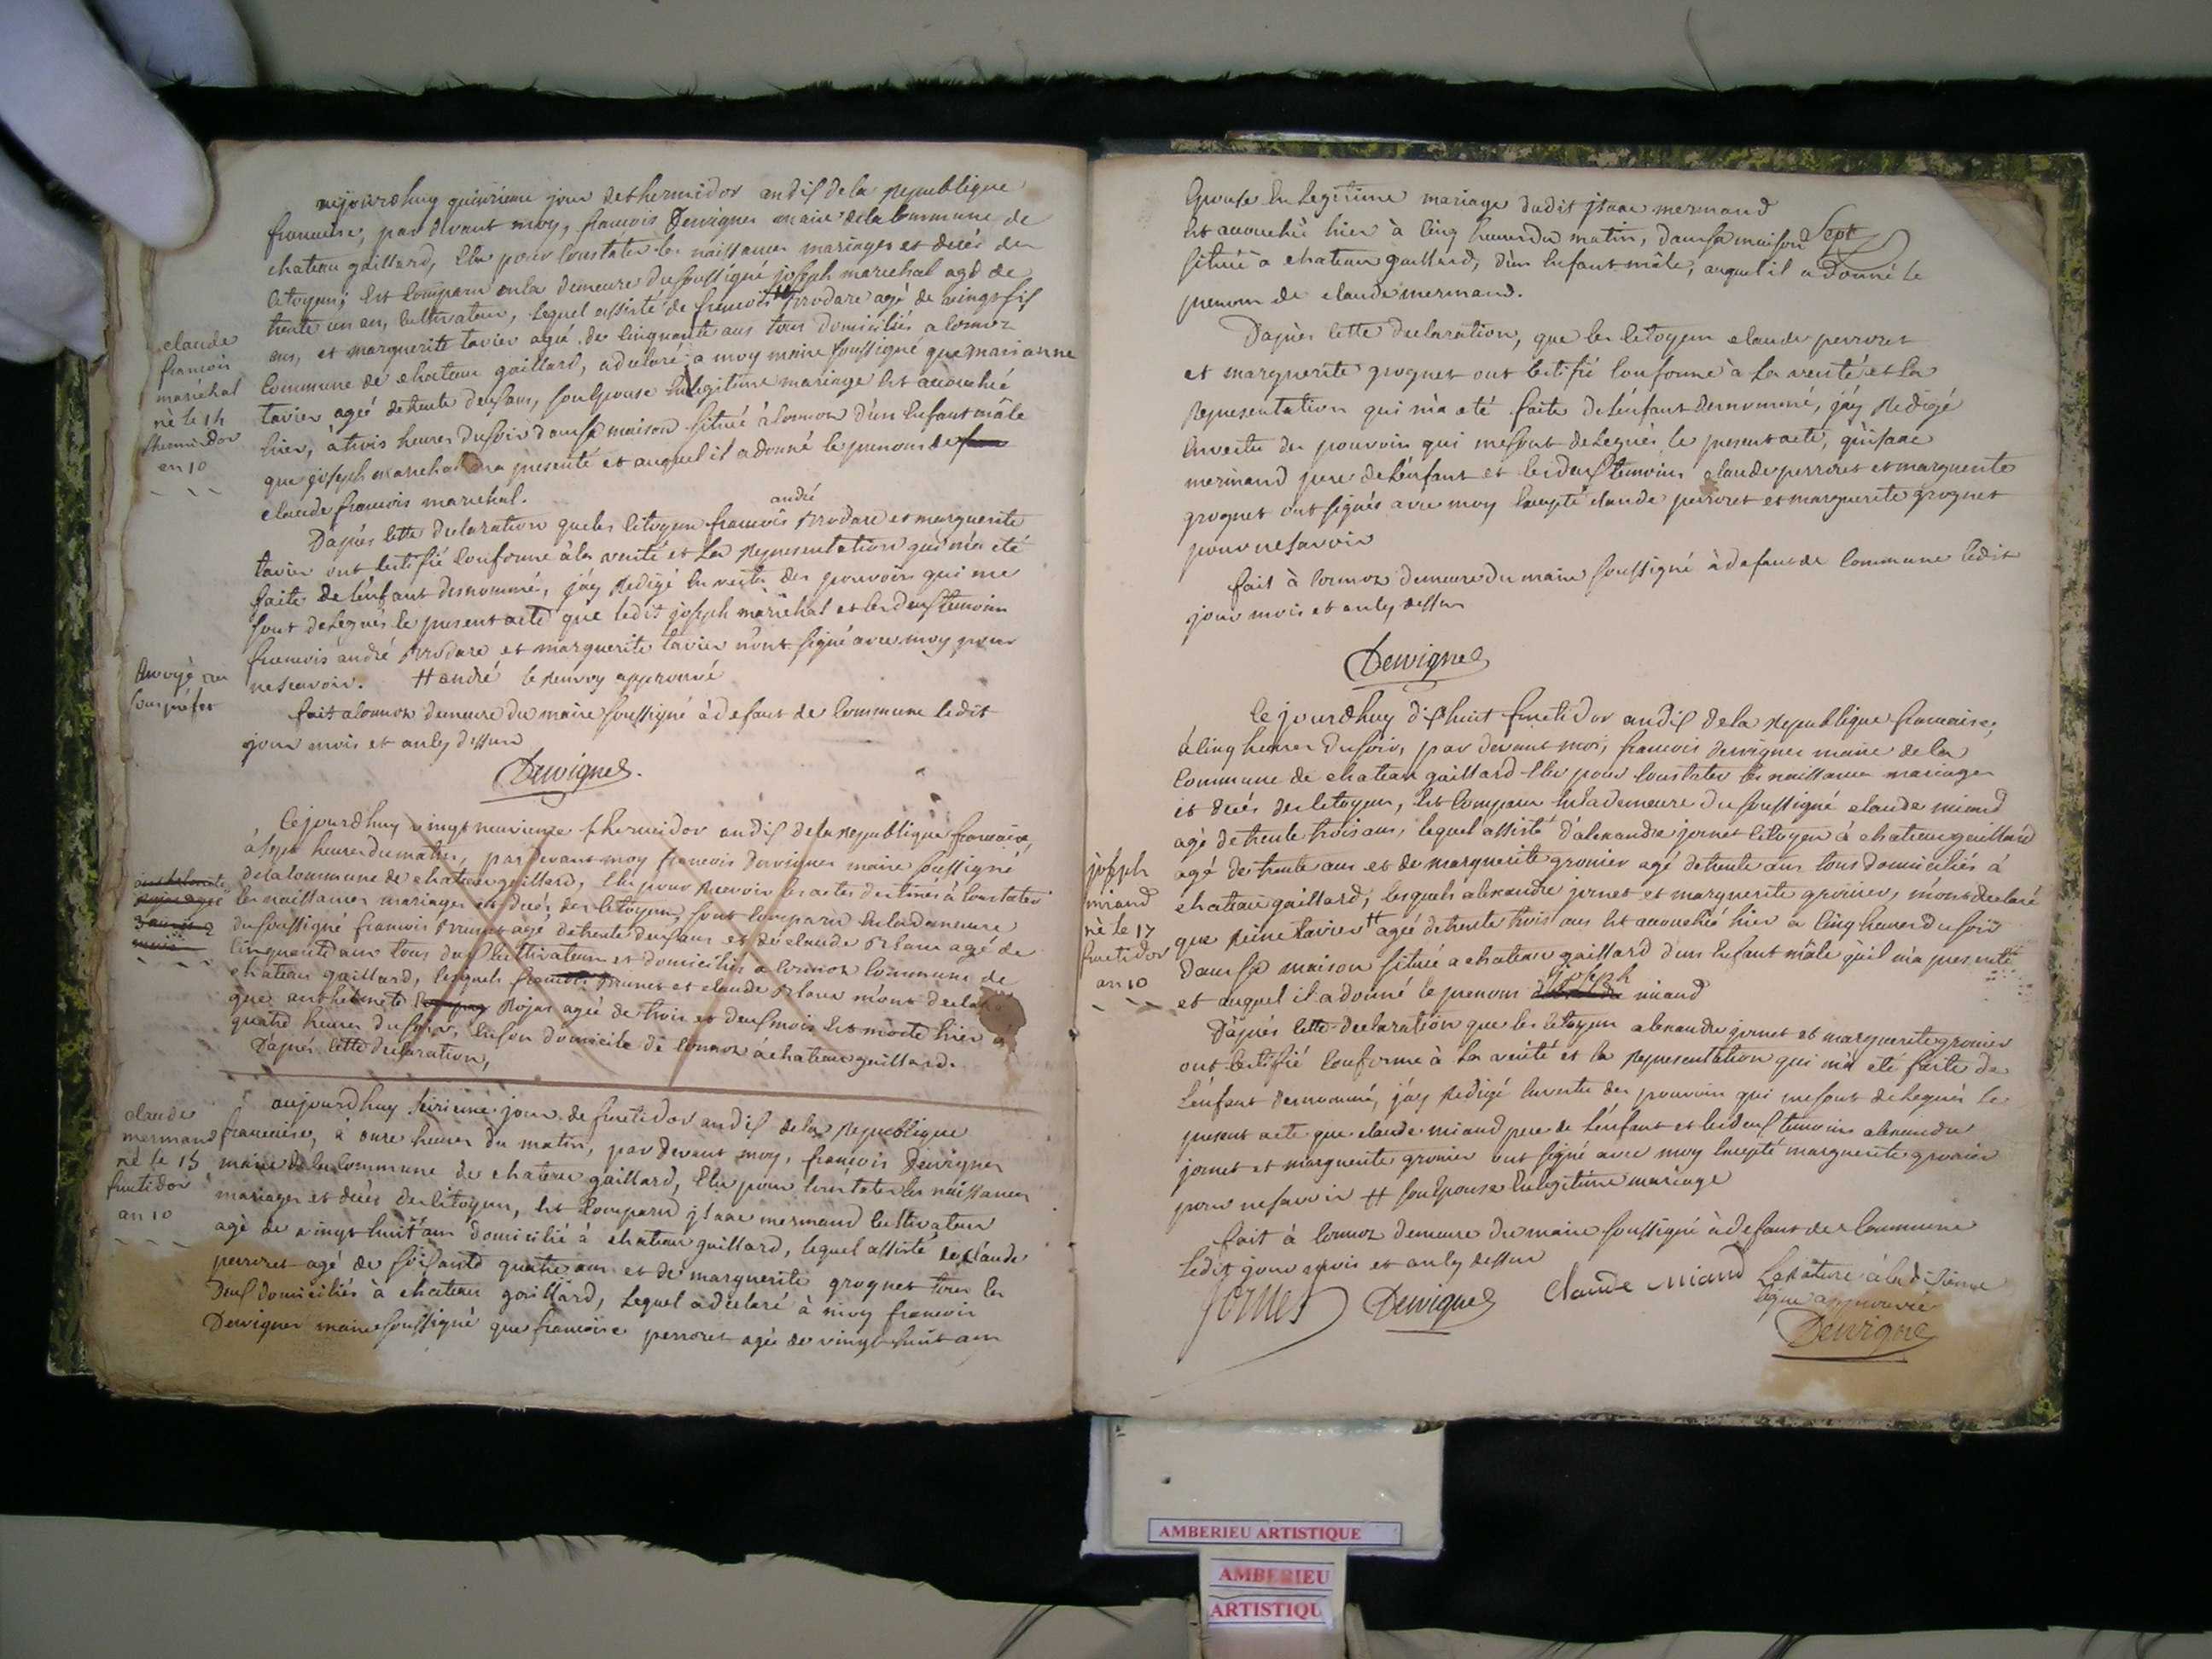 aujourdhuy quinzieme jour de thermidor an dix de la republique
francaise, par devant moy, francois Dervignes maire de la Commune de
chateau gaillard, Elu pour Constater les naissances mariages et decés des
Citoyens; Est Comparu en la demeure du soussigné joseph marechal agé de
trente un an, Cultivateur, lequel assisté de francois # brodare agé de vingt six
ans, et marguerite tavier agée de Cinquante ans tous domiciliés a Cormoz
Commune de chateau gaillard, a declaré a moy maire soussigné que marianne
tavier ageé de trente deux ans, son Epouse En legitime mariage Est accouchée
hier, à trois heures du soir dans sa maison située à Cormoz d'un Enfant mâle
que joseph marechal m'a presenté et auquel il a donné le prenom de
claude francois marechal.
claude
francois
maréchal
né le 14
thermidor
an 10
andré
D'après Cette declaration que les Citoyens francois brodare et marguerite
tavier ont Certifié Conforme à la verité et la representation qui m'a eté
faite de l'enfant denommé, j'ay redigé En vertu des pouvoirs qui me
sont delegués le present acte que ledit joseph maréchal et les deux temoins
francois andré brodare et marguerite tavier n'ont signé avec moy pour
ne scavoir. # andré le renvoy approuvé
Envoyé au
sous préfet
fait a Cormoz demeure du maire soussigné à defaut de Commune ledit
jour mois et an cy dessus
Dervignes.
Cejourdhuy vingt neuvieme thermidor an dix de la republique francaise,
à sept heures du matin, par devant moy francois Dervignes maire soussigné
de la Commune de chateau gaillard, Elu pour recevoir les actes destinés à Constater
les naissances mariages et decés des Citoyens, sont Comparu En la demeure
du soussigné francois brunet agé de trente deux ans et de claude blanc agé de
Cinquante ans tous deux Cultivateurs et domiciliés a Cormoz Commune de
chateau gaillard, lesquels francois brunet et claude blanc m'ont declaré
que anthelmete rojas ageé de trois et deux mois Est morte hier a
quatre heures du soir, En son domicile de Cormoz à chateau gaillard.
D'après Cette declaration,
claude
mermand
né le 15
fructidor
an 10
aujourdhuy seizieme jour de fructidor an dix de la republique
francaise, à onze heures du matin, par devant moy, francois Dervignes
maire de la Commune de chateau gaillard, Elu pour Constater les naissances
mariages et decés des Citoyens, Est Comparu jsaac mermand Cultivateur
agé de vingt huit ans domicilié à chateau gaillard, lequel assisté de claude
perroret agé de soixante quatre ans et de marguerite grognet tous les
deux domiciliés à chateau gaillard, lequel a declaré à moy francois
Dervignes maire soussigné que francoise perroret agée de vingt huit ans
Epouse En legitime mariage dudit jsaac mermand
Est accouchée hier à Cinq heures du matin, dans sa maison
Sept
située à chateau gaillard, d'un Enfant mâle, auquel il a donné le
prenom de claude mermand.
D'après Cette declaration, que les Citoyens claude perroret
et marguerite grognet ont Certifié Conforme à la verité et la
representation qui m'a eté faite de l'enfant denommé, j'ay redigé
En vertu des pouvoirs qui me sont delegués le present acte, qu'isaac
mermand pere de l'enfant et les deux temoins claude perroret et marguerite
grognet ont signés avec moy Excepté claude perroret et marguerite grognet
pour ne savoir
fait à Cormoz demeure du maire soussigné à defaut de Commune ledit
jour mois et an cy dessus
Dervignes
Cejourdhuy dix huit fructidor an dix de la republique francaise,
à Cinq heures du soir, par devant moi, francois dervignes maire de la
Commune de chateau gaillard Elu pour Constater les naissances mariages
et decés des Citoyens, Est Comparu En la demeure du soussigné claude miand
agé de trente trois ans, lequel assisté d'alexandre jornet Citoyen à chateau gaillard
agé de trente ans et de marguerite gronier agé de trente ans tous domiciliés à
chateau gaillard, lesquels alexandre jornet et marguerite gronier, m'ont declaré
que Reine tavier # agée de trente trois ans Est accouchée hier a Cinq heures du soir
dans sa maison située a chateau gaillard d'un Enfant mâle qu'il m'a presenté
joseph
et auquel il a donné le prenom miand
joseph
miand
né le 17
fructidor
an 10
D'après Cette declaration que les Citoyens alexandre jornet et marguerite gronier
ont Certifié Conforme à la verité et la representation qui m'a eté faite de
l'enfant denommé, j'ay redigé En vertu des pouvoirs qui me sont delegués le
present acte que claude miand pere de l'enfant et les deux temoins alexandre
jornet et marguerite gronier ont signé avec moy Excepté marguerite gronier
pour ne savoir # son Epouse En legitime mariage
fait à Cormoz demeure du maire soussigné à defaut de Commune
ledit jour mois et an cy dessus
Jornet Dervignes Claude Miand
La rature à la dixieme
ligne approuvée
Dervignes
AMBERIEU ARTISTIQUE
AMBERIEU
ARTISTIQU